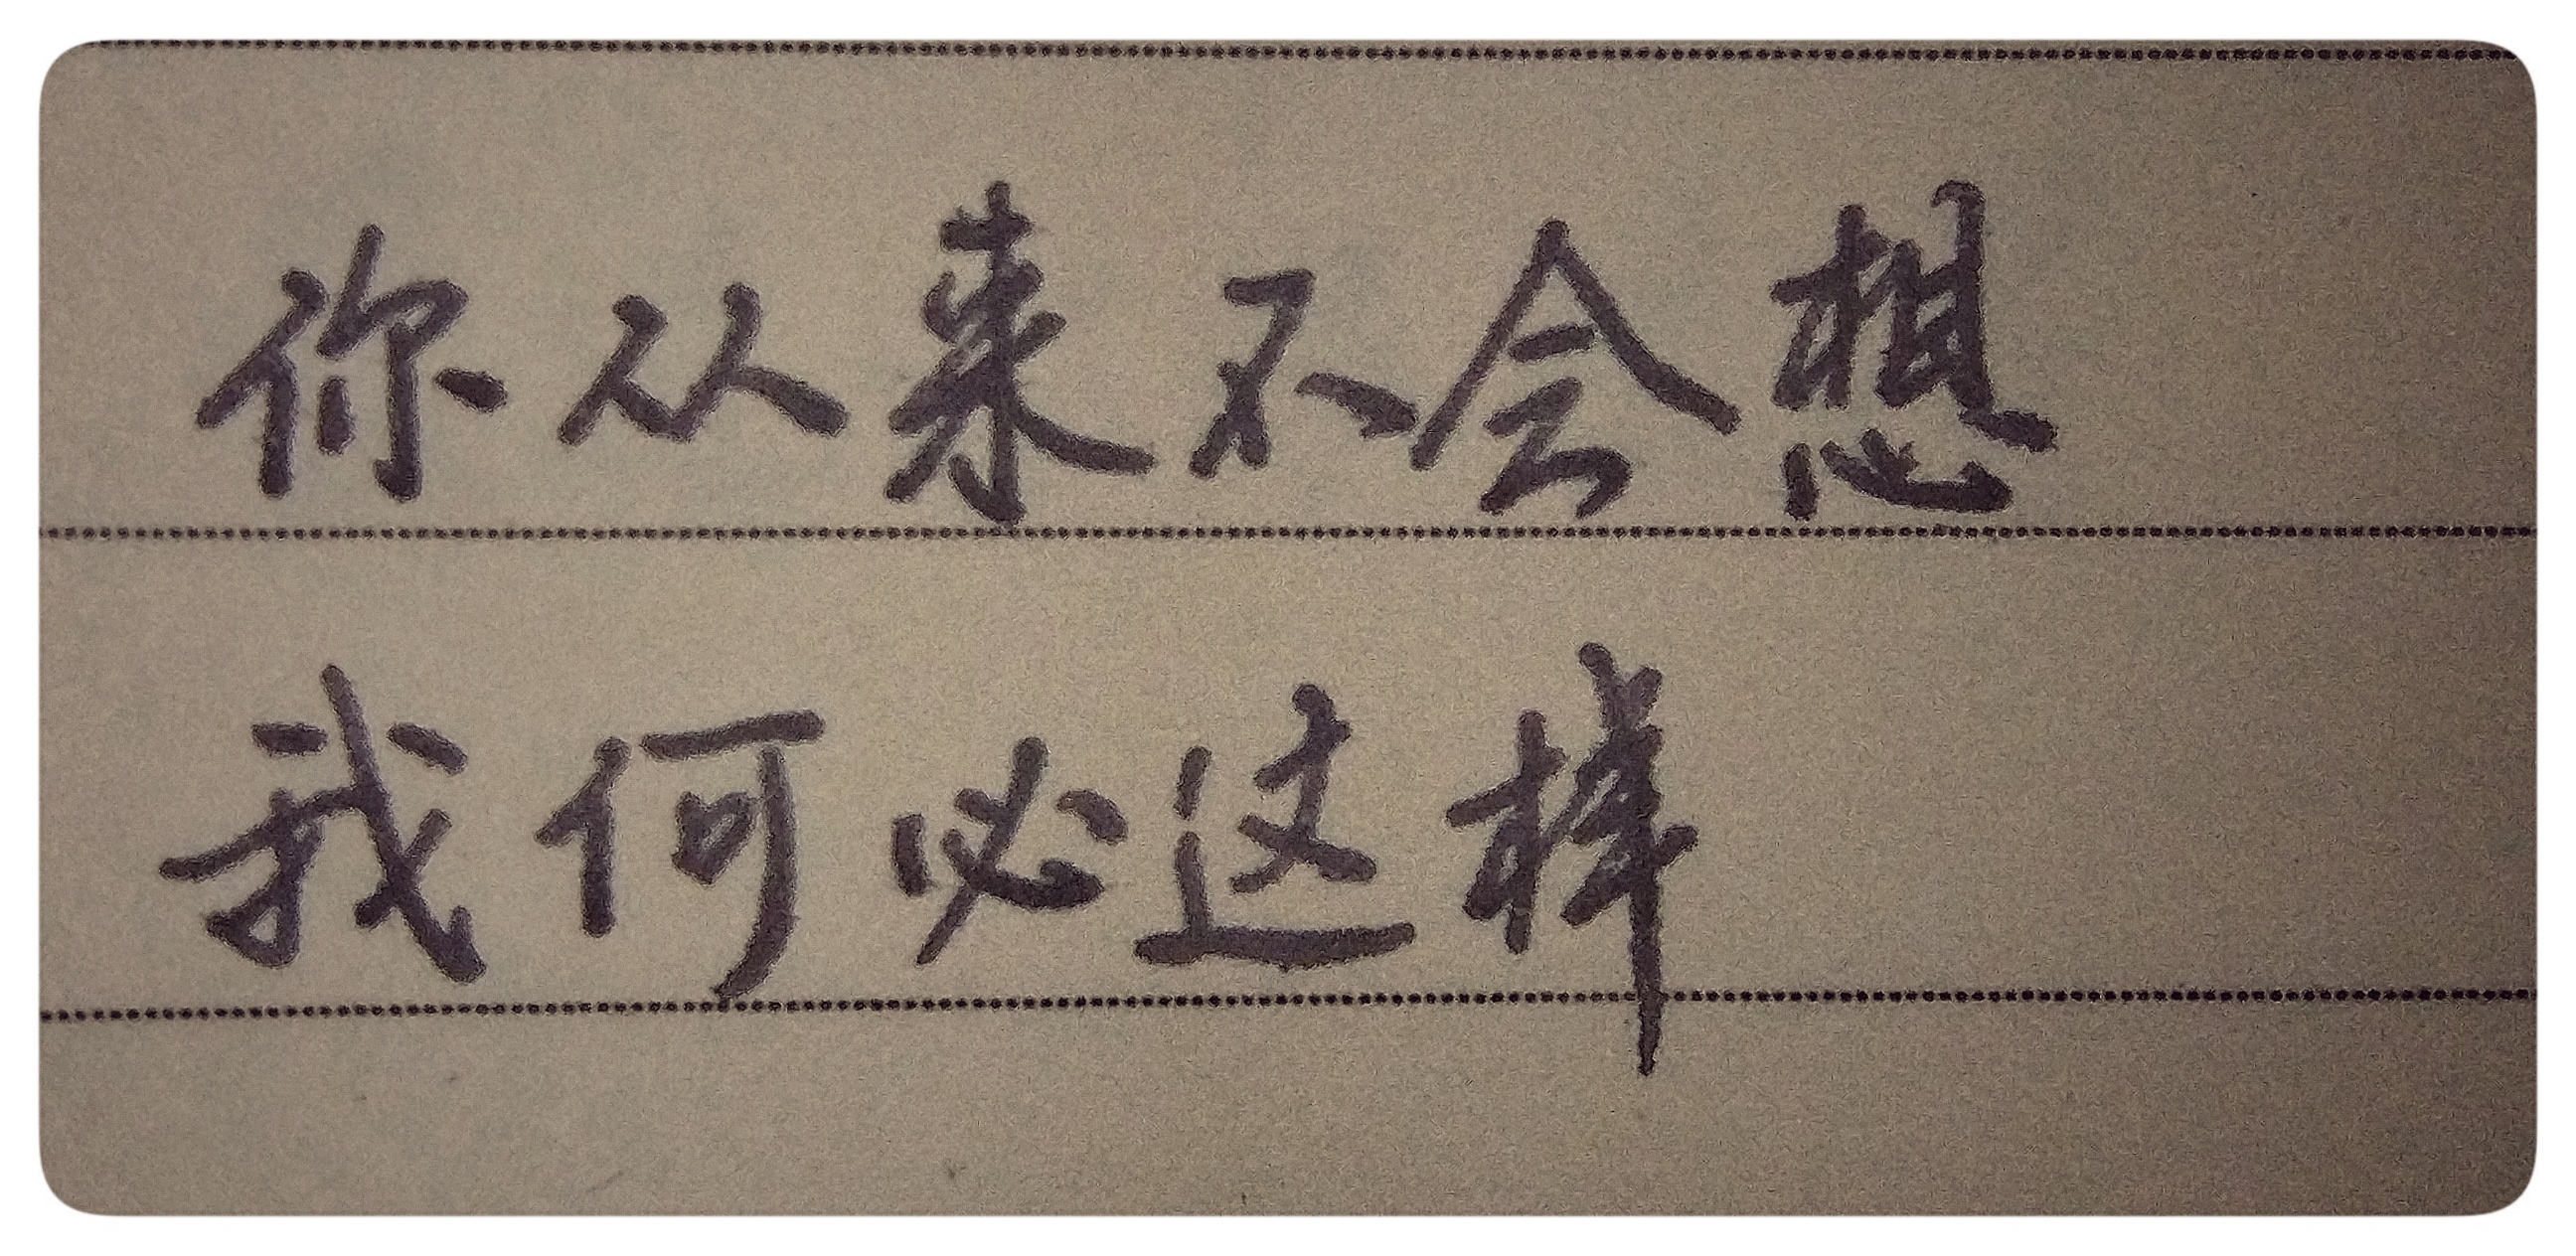 你从来不会想
我何必这样